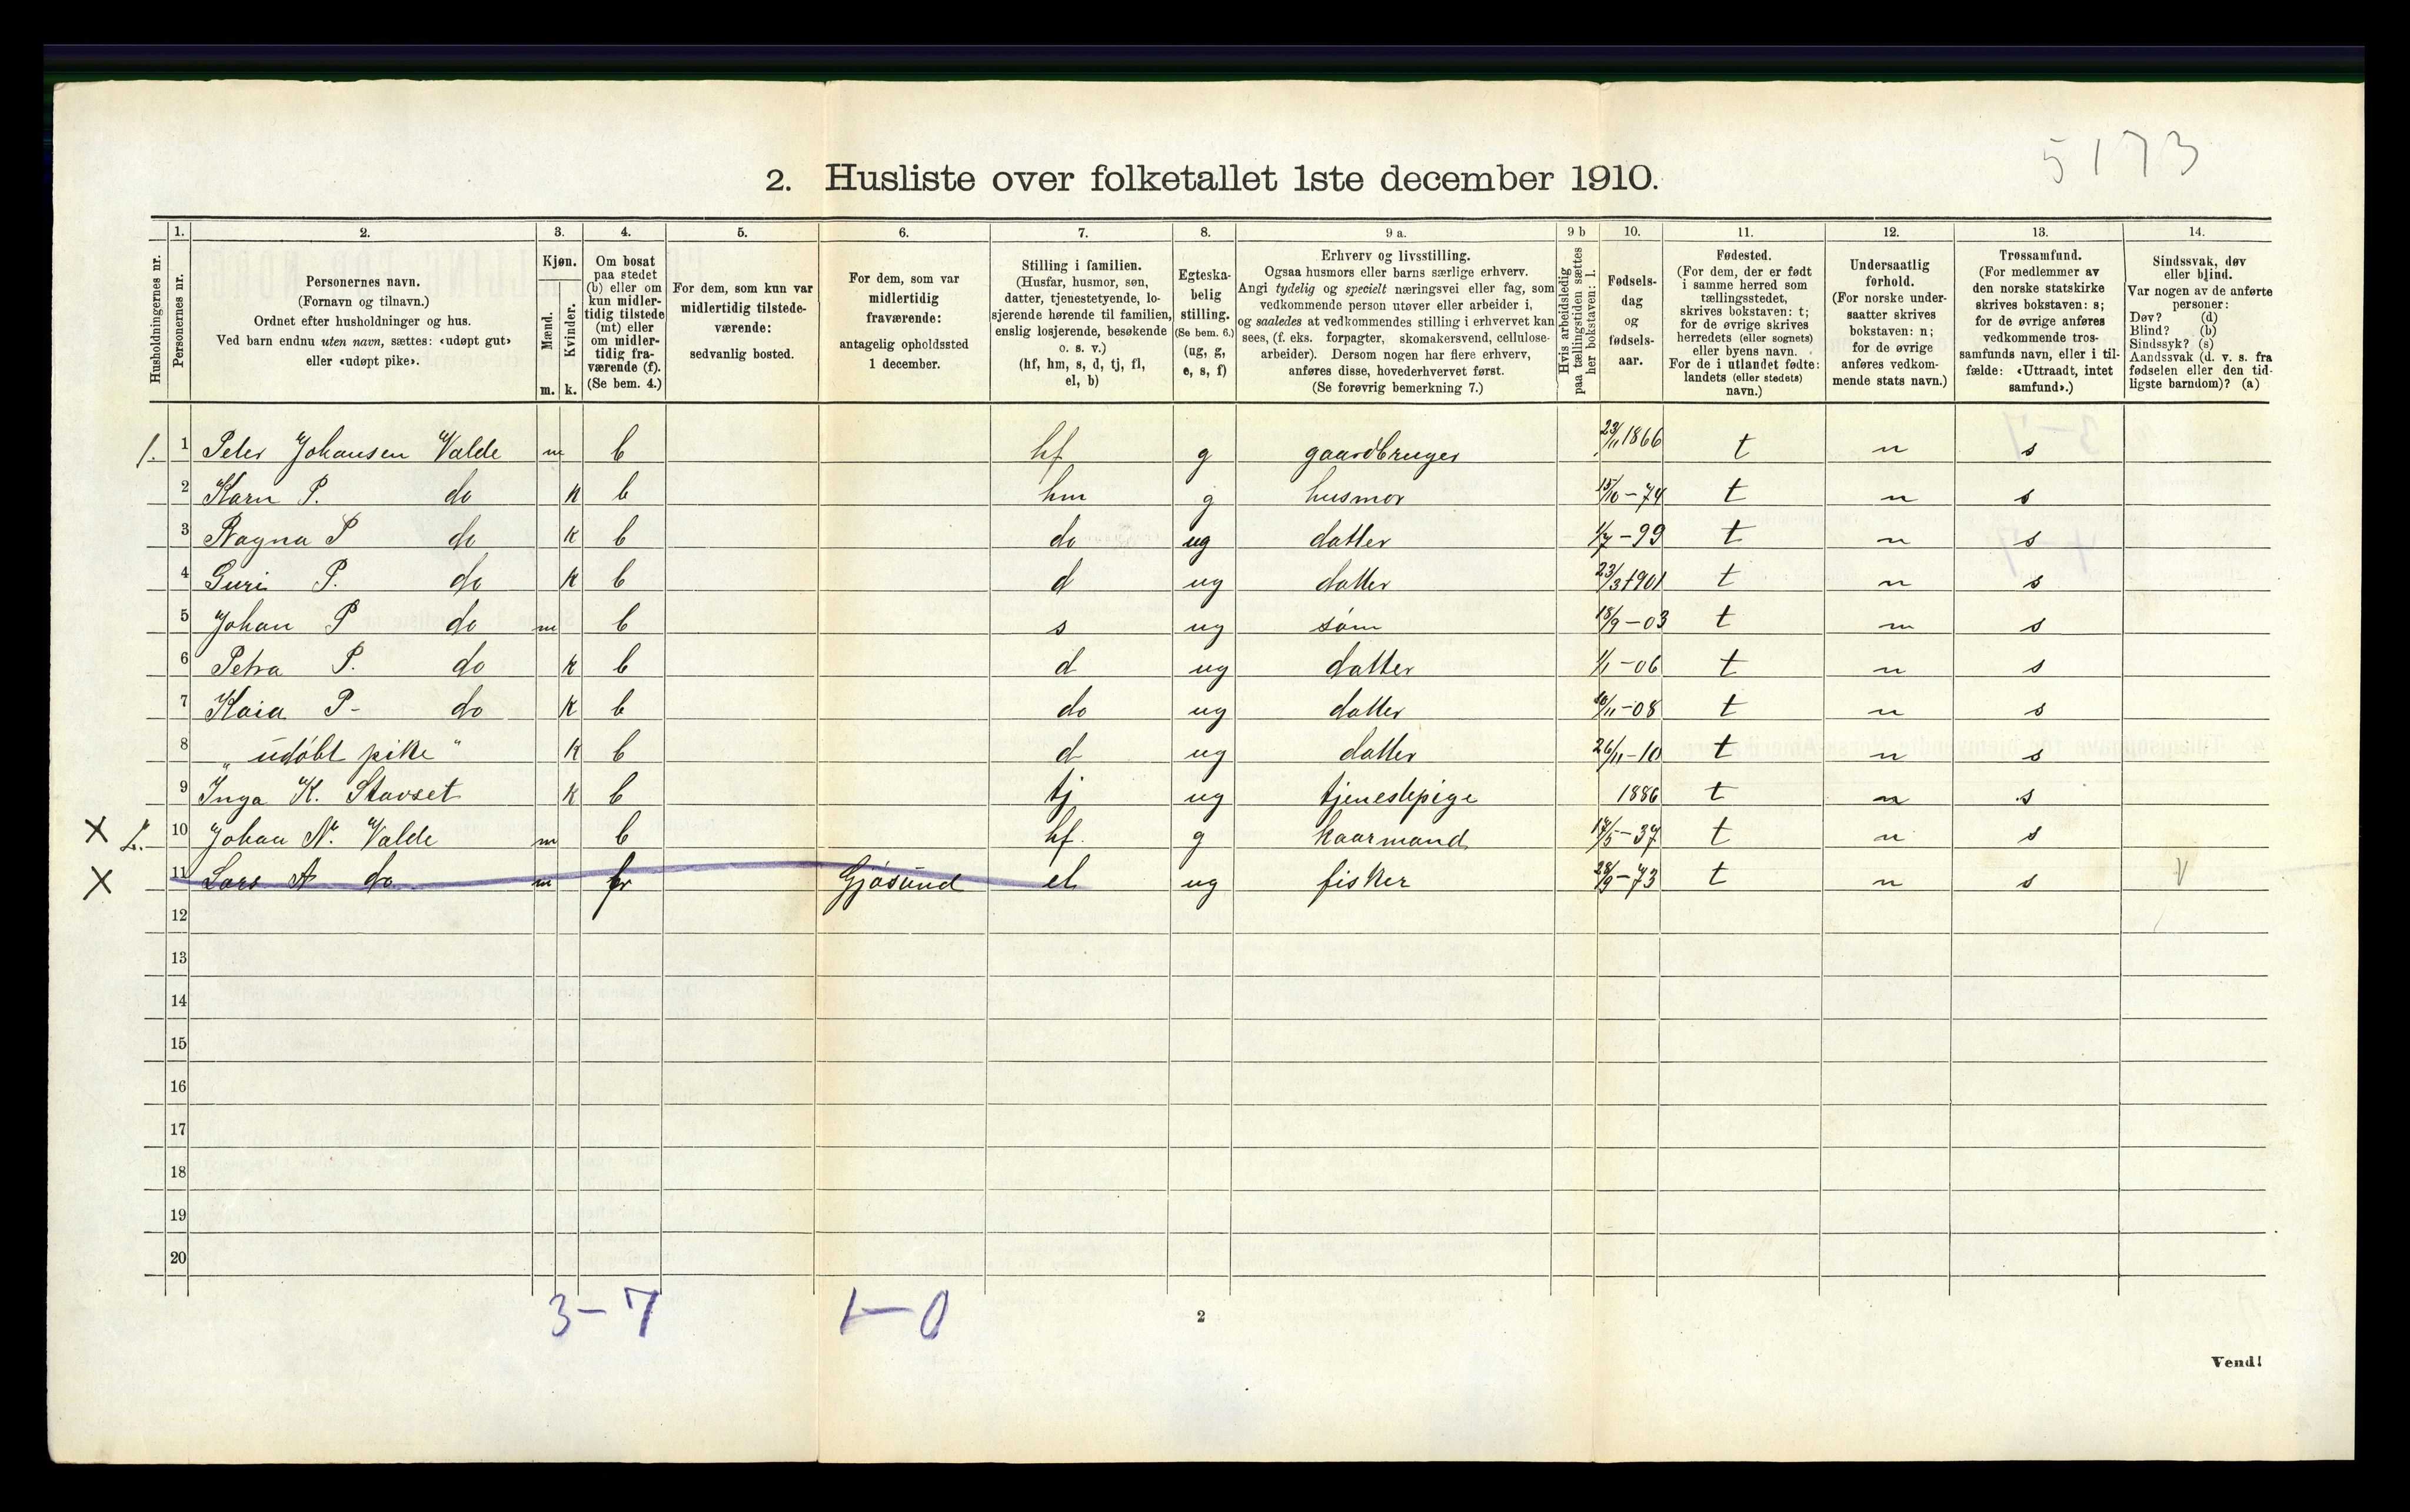 5173
2. Husliste over folketallet 1ste december 1910.
1. 2. 3. 4. 5. 6. 7. 8. 9 a. 9 b 10. 11. 12. 13. 14.
Husholdningernes nr.
Personernes nr.
Personernes navn.
(Fornavn og tilnavn.)
Ordnet efter husholdninger og hus.
Ved barn endnu uten navn, sættes: «udøpt gut»
eller «udøpt pike».
Kjøn.
Mænd.
Kvinder.
m. k.
Om bosat
paa stedet
(b) eller om
kun midler-
tidig tilstede
(mt) eller
om midler-
tidig fra-
værende (f).
(Se bem. 4.)
For dem, som kun var
midlertidig tilstede-
værende:
sedvanlig bosted.
For dem, som var
midlertidig
fraværende:
antagelig opholdssted
1 december.
Stilling i familien.
(Husfar, husmor, søn,
datter, tjenestetyende, lo-
sjerende hørende til familien,
enslig losjerende, besøkende
o. s. v.)
(hf, hm, s, d, tj, fl,
el, b)
Egteska-
belig
stilling.
(Se bem. 6.)
(ug, g,
e, s, f)
Erhverv og livsstilling.
Ogsaa husmors eller barns særlige erhverv.
Angi tydelig og specielt næringsvei eller fag, som
vedkommende person utøver eller arbeider i,
og saaledes at vedkommendes stilling i erhvervet kan
sees, (f. eks. forpagter, skomakersvend, cellulose-
arbeider). Dersom nogen har flere erhverv,
anføres disse, hovederhvervet først.
(Se forøvrig bemerkning 7.)
Hvis arbeidsledig
paa tællingstiden sættes
her bokstaven: l.
Fødsels-
dag
og
fødsels-
aar.
Fødested.
(For dem, der er født
i samme herred som
tællingsstedet,
skrives bokstaven: t;
for de øvrige skrives
herredets (eller sognets)
eller byens navn.
For de i utlandet fødte:
landets (eller stedets)
navn.)
Undersaatlig
forhold.
(For norske under-
saatter skrives
bokstaven: n;
for de øvrige
anføres vedkom-
mende stats navn.)
Trossamfund.
(For medlemmer av
den norske statskirke
skrives bokstaven: s;
for de øvrige anføres
vedkommende tros-
samfunds navn, eller i til-
fælde: «Uttraadt, intet
samfund».)
Sindssvak, døv
eller blind.
Var nogen av de anførte
personer:
Døv? (d)
Blind? (b)
Sindssyk? (s)
Aandssvak (d. v. s. fra
fødselen eller den tid-
ligste barndom)? (a)
1. 1 Peter Johansen Valde m b hf g gaardbruger 23/11 1866 t n s
2 Karn P. do k b hm g husmor 15/10-74 t n s
3 Ragna P do k b do ug datter 1/7-99 t n s
4 Guri P. do k b d ug datter 23/3 1901 t n s
5 Johan P do m b s ug søm 18/9-03 t n s
6 Petra P. do k b d ug datter 1/1-06 t n s
7 Kaia P- do k b do ug datter 10/11-08 t n s
8 „udøbt pike" k b d ug datter 26/11-10 t n s
9 Inga K. Stavset k b tj ug tjenestepige 1886 t n s
X 2. 10 Johan N. Valde m b hf. g kaarmand 17/5-37 t n s
X 11 Lars A do m fr Gjøsund el ug fisker 28/9-73 t n s V
12
13
14
15
16
17
18
19
20
3-7 1-0
2
Vend!